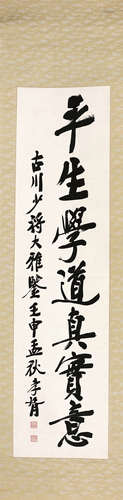 平生學道真實意
古川少將大雅鑒壬申孟秋孝胥